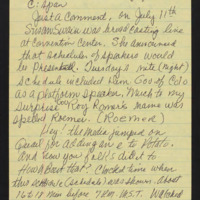 C: Span
Just a comment, on July 11th
Susan Swain was broadcasting live
at Convention Center. She announced
that schedules of speakers would
be Presented. Tuesday's nite (Night)
schedule included them Gov of Colo
as a platform speaker. Much to my
surprise Gov Roy Romer's name was
spelled Roemer. (Roemer)
Hey! the Media jumped on
Quail for adding an e to Potato.
And now you folks did it to
How about that? Clocked time when
this schedule was shown about
16 & 18 min before 7 PM M.S.T. Watched